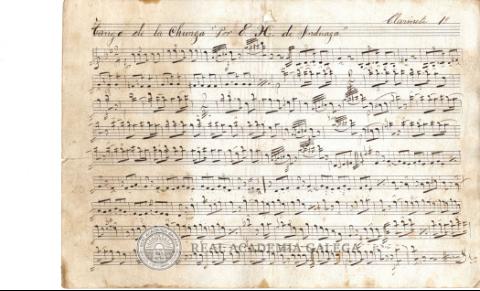 Tango de la Churiga Por E. H. de Arduaga
Clarinete 1º
REAL ACADEMIA GALEGA